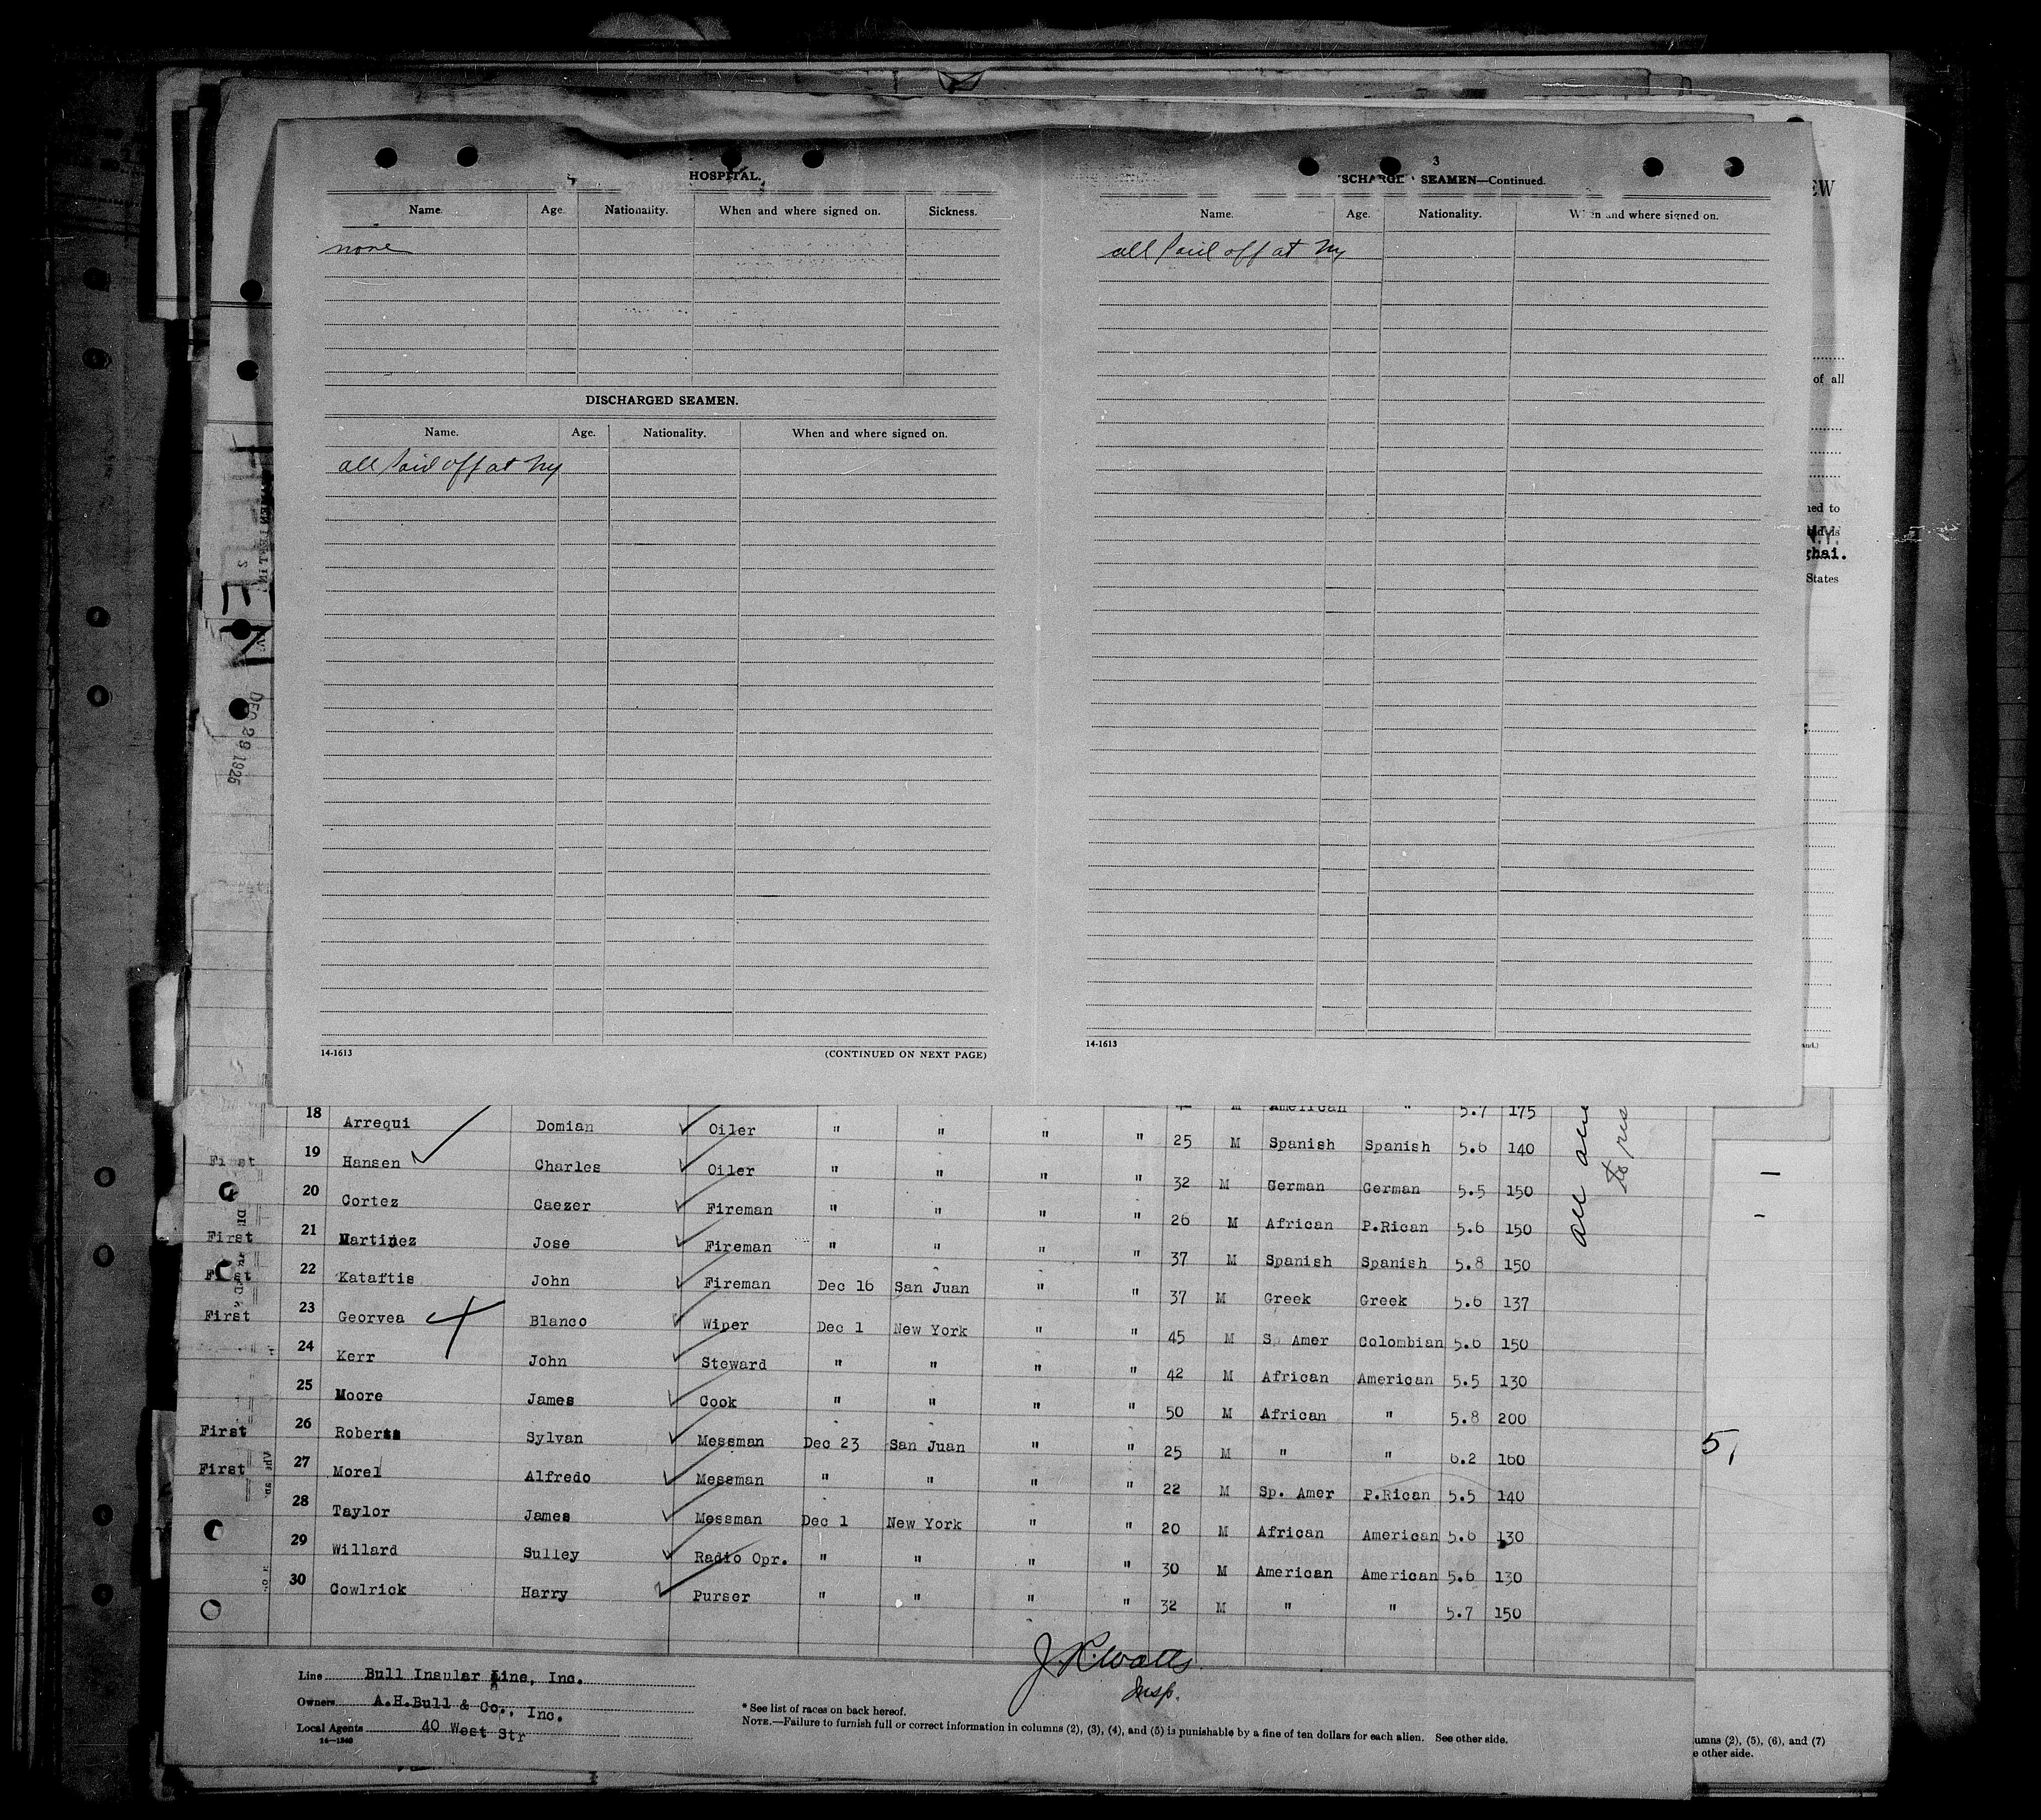 HOSPITAL.
Name. Age. Nationality. When and where signed on. Sickness.
none
DISCHARGED SEAMEN.
Name. Age. Nationality. When and where signed on.
all Paid off at Ny
14-1613 (CONTINUED ON NEXT PAGE)
3
SCHARGE SEAMEN—Continued.
Name. Age. Nationality. When and where signed on.
all Paid off at Ny
14-1613
EW
of all
ned to
N.Y.
ghai.
States
DEC 29 1925
American " 5.7 175
18 Arrequi Domian Oiler " " " " 25 M Spanish Spanish 5.6 140
First 19 Hansen Charles Oiler " " " " 32 M German German 5.5 150
20 Cortez Caezer Fireman " " " " 26 M African P.Rican 5.6 150
First 21 Martinez Jose Fireman " " " " 37 M Spanish Spanish 5.8 150
First 22 Kataftis John Fireman Dec 16 San Juan " " 37 M Greek Greek 5.6 137
First 23 Georvea Blanco Wiper Dec 1 New York " " 45 M S. Amer Colombian 5.6 150
24 Kerr John Steward " " " " 42 M African American 5.5 130
25 Moore James Cook " " " " 50 M African " 5.8 200
First 26 Roberts Sylvan Messman Dec 23 San Juan " " 25 M " " 6.2 160
First 27 Morel Alfredo Messman " " " " 22 M Sp. Amer P.Rican 5.5 140
28 Taylor James Messman Dec 1 New York " " 20 M African American 5.6 130
29 Willard Sulley Radio Opr. " " " " 30 M American American 5.6 130
30 Cowlrick Harry Purser " " " " 32 M " " 5.7 150
all
to
5,
J R. Watts
Insp.
Line Bull Insular Line, Inc.
Owners A.H.Bull & Co., Inc.
Local Agents 40 West Str
14—1240
* See list of races on back hereof.
NOTE.—Failure to furnish full or correct information in columns (2), (3), (4), and (5) is punishable by a fine of ten dollars for each alien. See other side.
umns (2), (5), (6), and (7)
e other side.